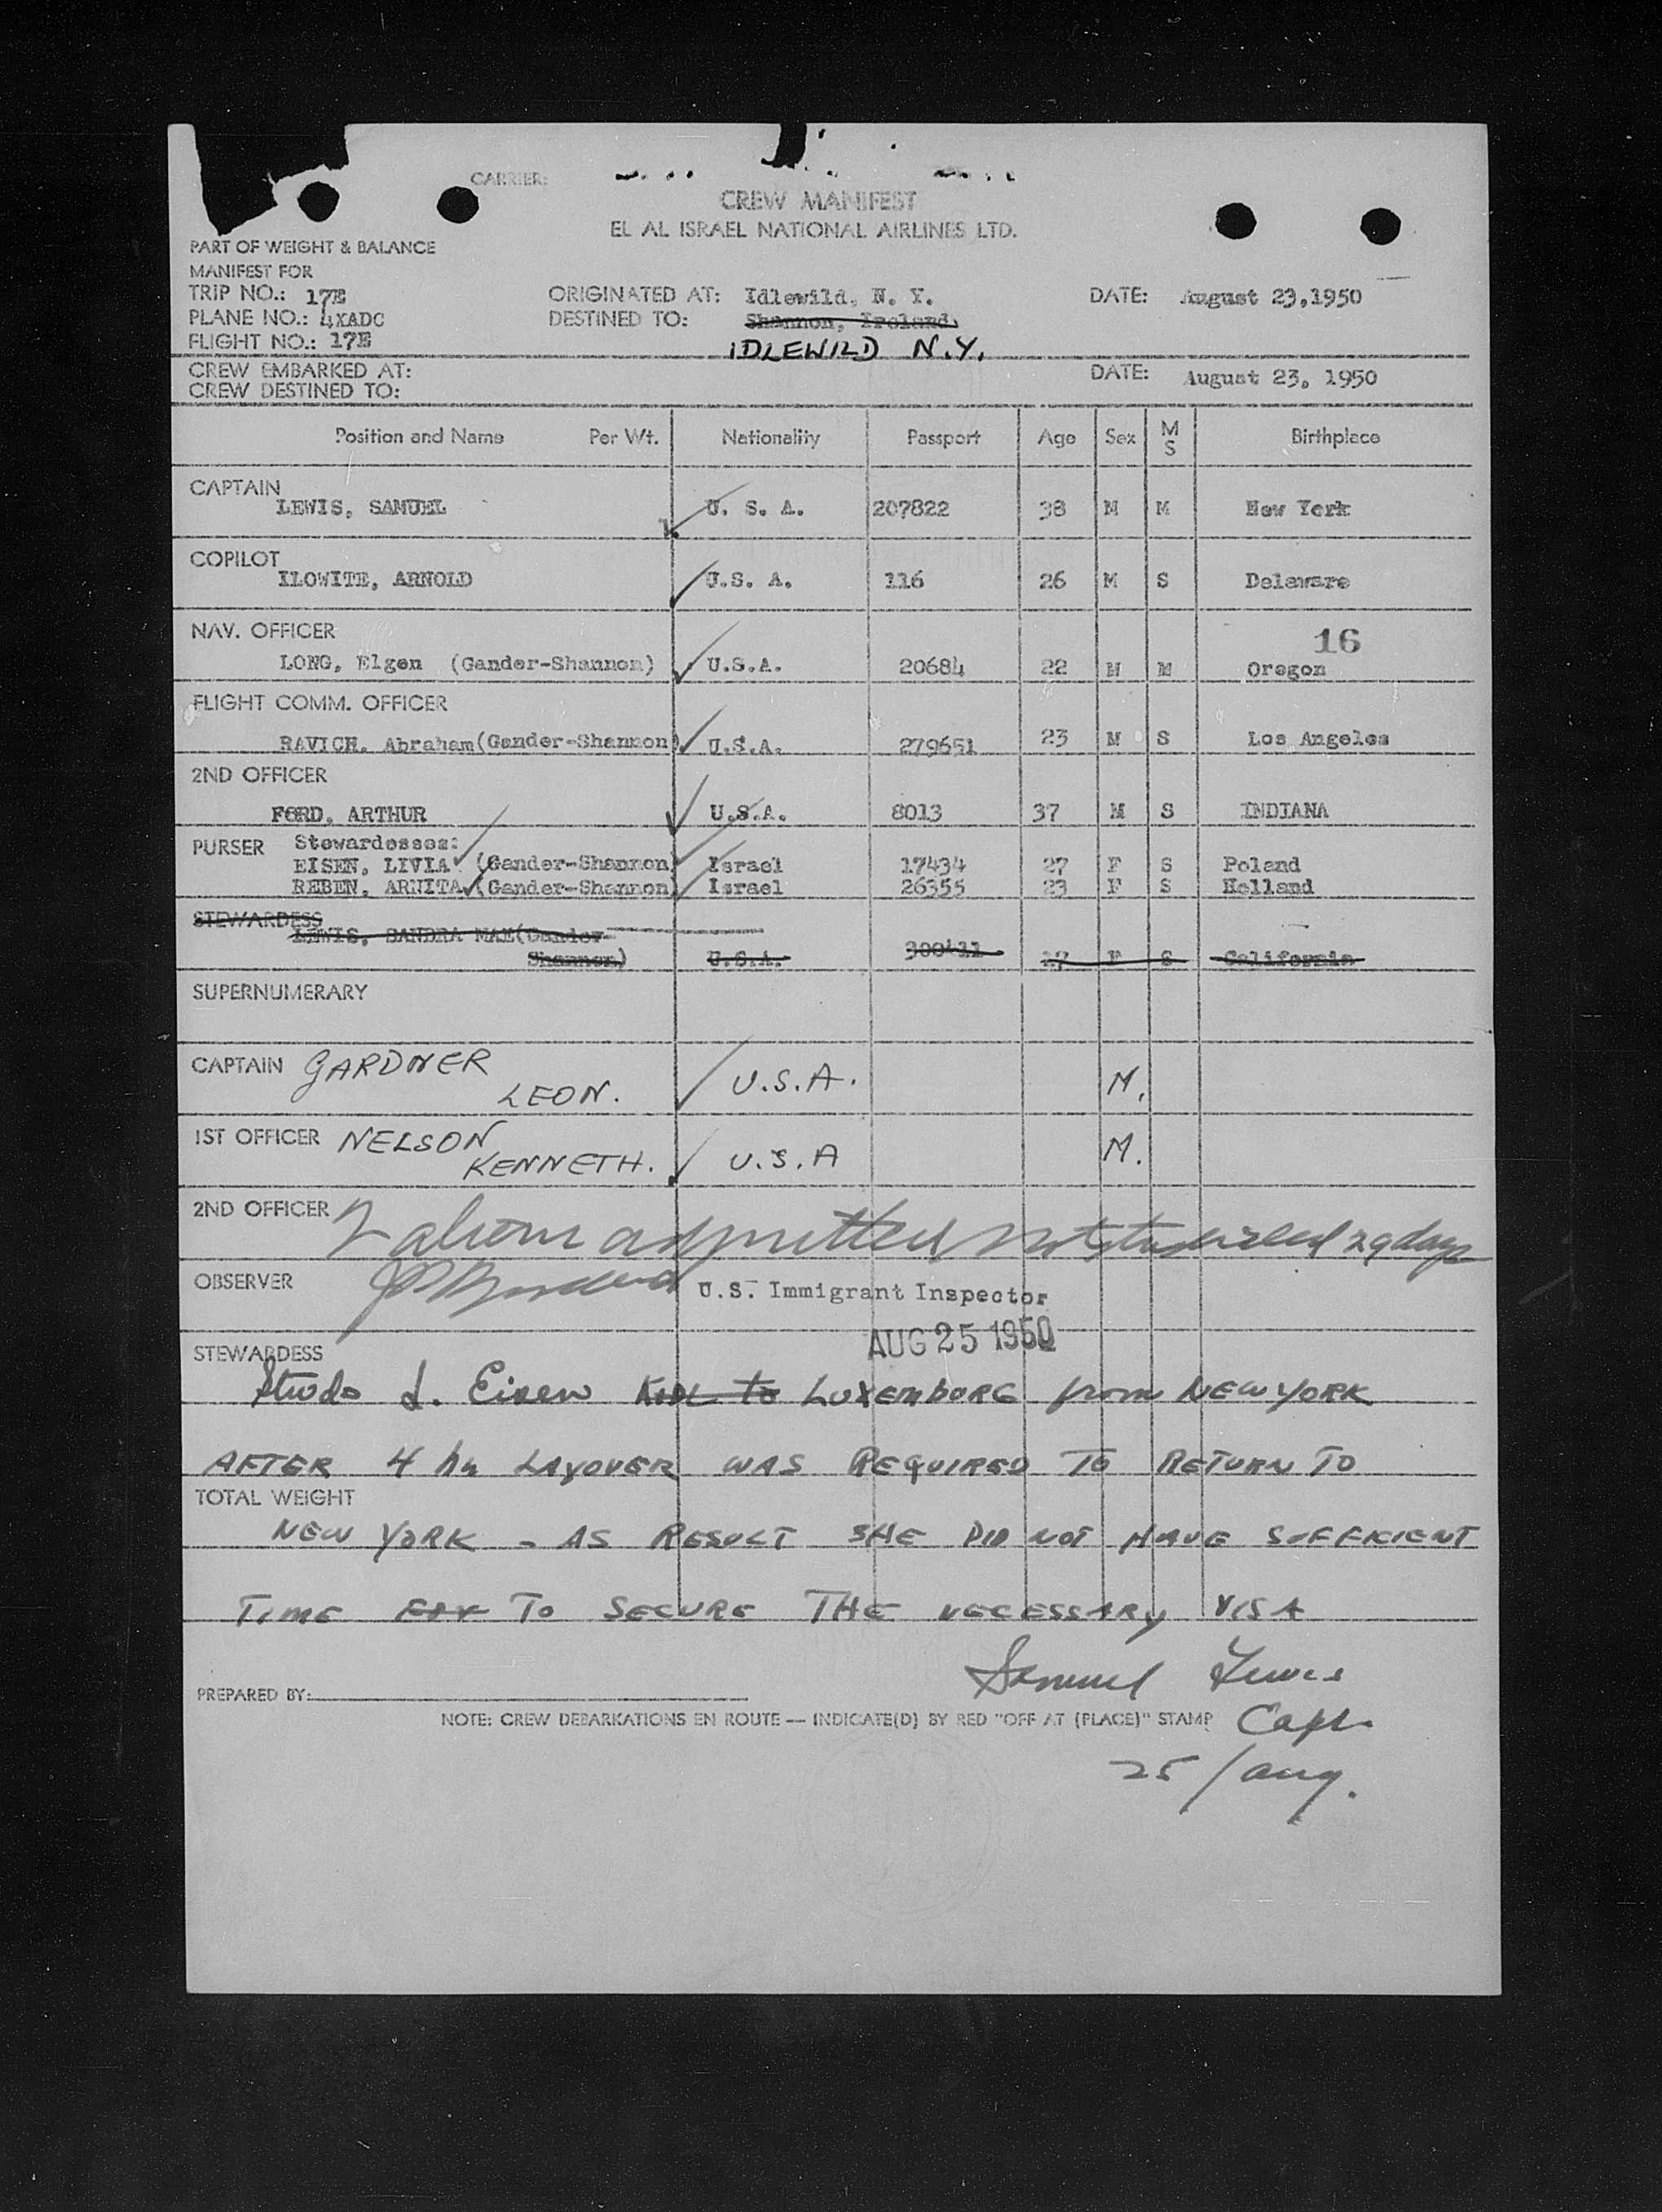 CARRIER:
CREW MANIFEST
EL AL ISRAEL NATIONAL AIRLINES LTD.
PART OF WEIGHT & BALANCE
MANIFEST FOR
TRIP NO.: 17E ORIGINATED AT: Idlewild, N. Y. DATE: August 23, 1950
PLANE NO.: 4XADC DESTINED TO: Shannon, Ireland
FLIGHT NO.: 17E IDLEWILD N.Y.
CREW EMBARKED AT: DATE: August 23, 1950
CREW DESTINED TO:
Position and Name Per Wt. Nationality Passport Age Sex M S Birthplace
CAPTAIN
LEWIS, SAMUEL U. S. A. 207822 38 M M New York
COPILOT
ILOWITE, ARNOLD U.S. A. 116 26 M S Delaware
NAV. OFFICER 16
LONG, Elgen (Gander-Shannon) U.S.A. 20684 22 M M Oregon
FLIGHT COMM. OFFICER
RAVICH, Abraham (Gander-Shannon) U.S.A. 279651 23 M S Los Angeles
2ND OFFICER
FORD, ARTHUR U.S.A. 8013 37 M S INDIANA
PURSER Stewardesses:
EISEN, LIVIA (Gander-Shannon) Israel 17434 27 F S Poland
REBEN, ARNITA (Gander-Shannon) Israel 26355 23 F S Holland
STEWARDESS
LEWIS, SANDRA MAE (Gander-
Shannon) U.S.A. 300411 F S California
SUPERNUMERARY
CAPTAIN GARDNER
LEON. U.S.A. M.
1ST OFFICER NELSON
KENNETH. U.S.A M.
2ND OFFICER 2 aliens admitted not to exceed 29 days
OBSERVER U.S. Immigrant Inspector
AUG 25 1950
STEWARDESS
Stwds L. Eisen to LUXEMBORG from NEW YORK
AFTER 4 hr LAYOVER WAS REQUIRED TO RETURN TO
TOTAL WEIGHT
NEW YORK - AS RESULT SHE DID NOT HAVE SUFFICIENT
TIME FOR TO SECURE THE NECESSARY VISA
Samuel Lewis
PREPARED BY:
NOTE: CREW DEBARKATIONS EN ROUTE — INDICATE(D) BY RED "OFF AT (PLACE)" STAMP Capt.
25/Aug.